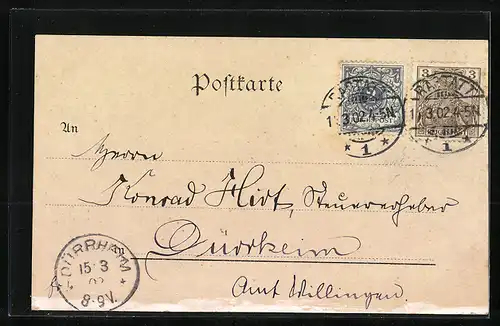 Postkarte
3 3
RASTATT
1 3.02.4-5N.
* 1 *
RASTATT
3.02.4-5N.
* 1 *
An
Herrn
Konrad Hirt, Steuererheber
in Dürrheim
Amt Villingen.
DÜRRHEIM
15 3
02
8-9V.